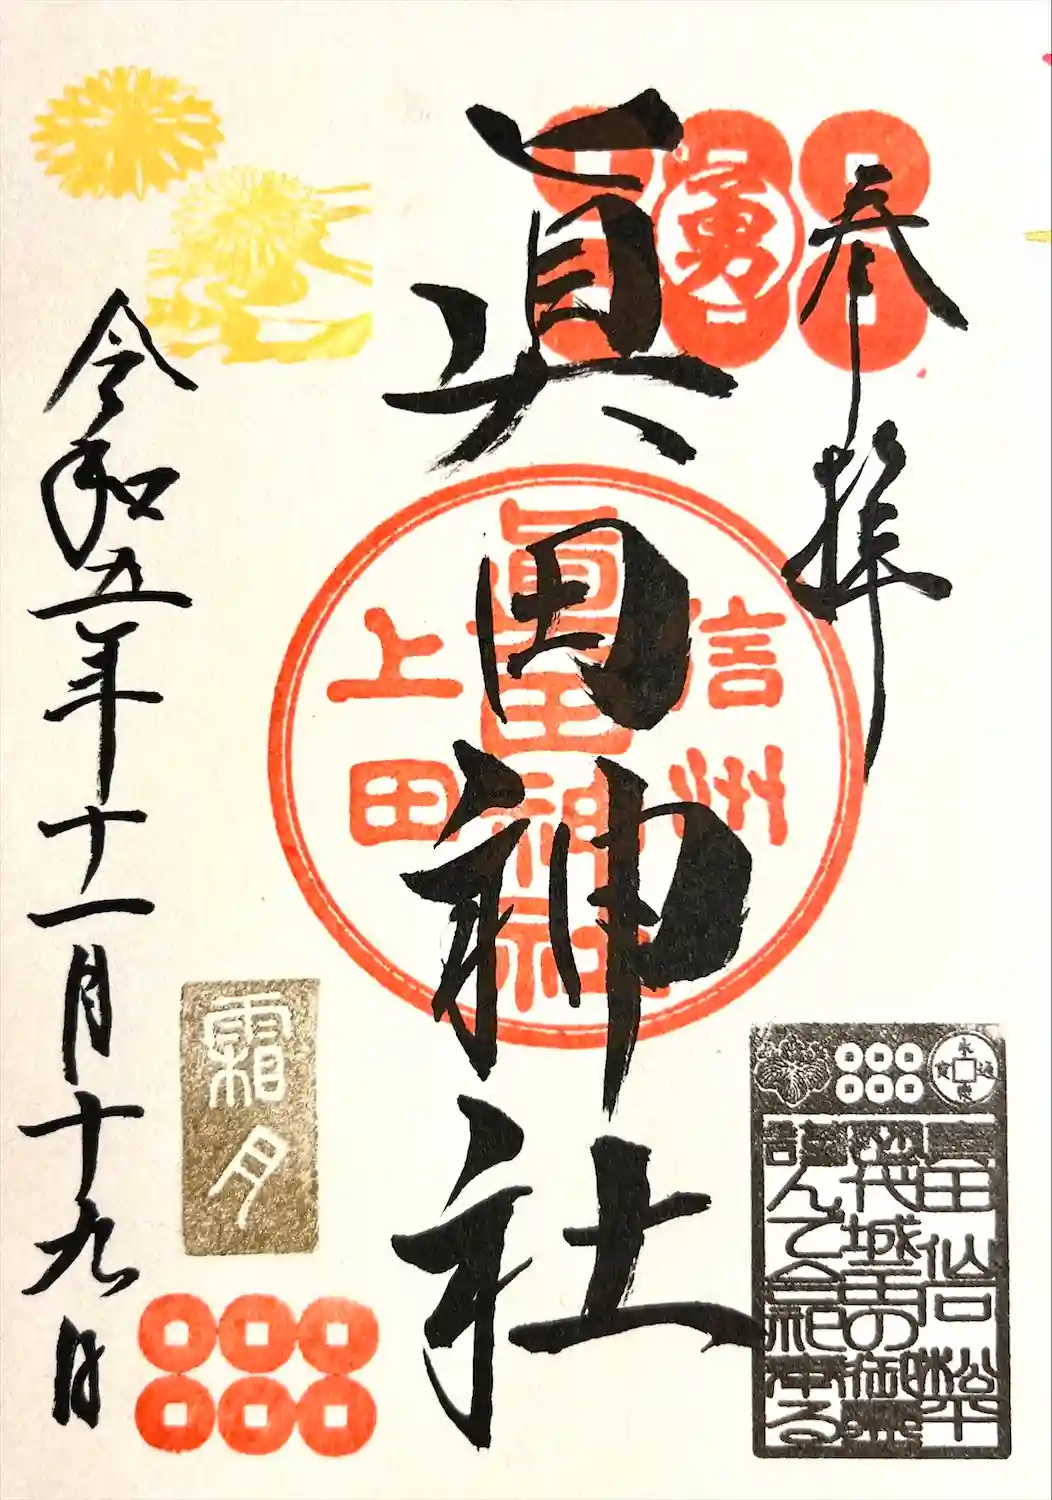 奉拝
勇
眞田神社
信州
眞田神社
上田
令和五年十一月十九日
霜月
永楽通寳
眞田 仙石 松平
歴代城主の御霊
謹んで合祀奉る